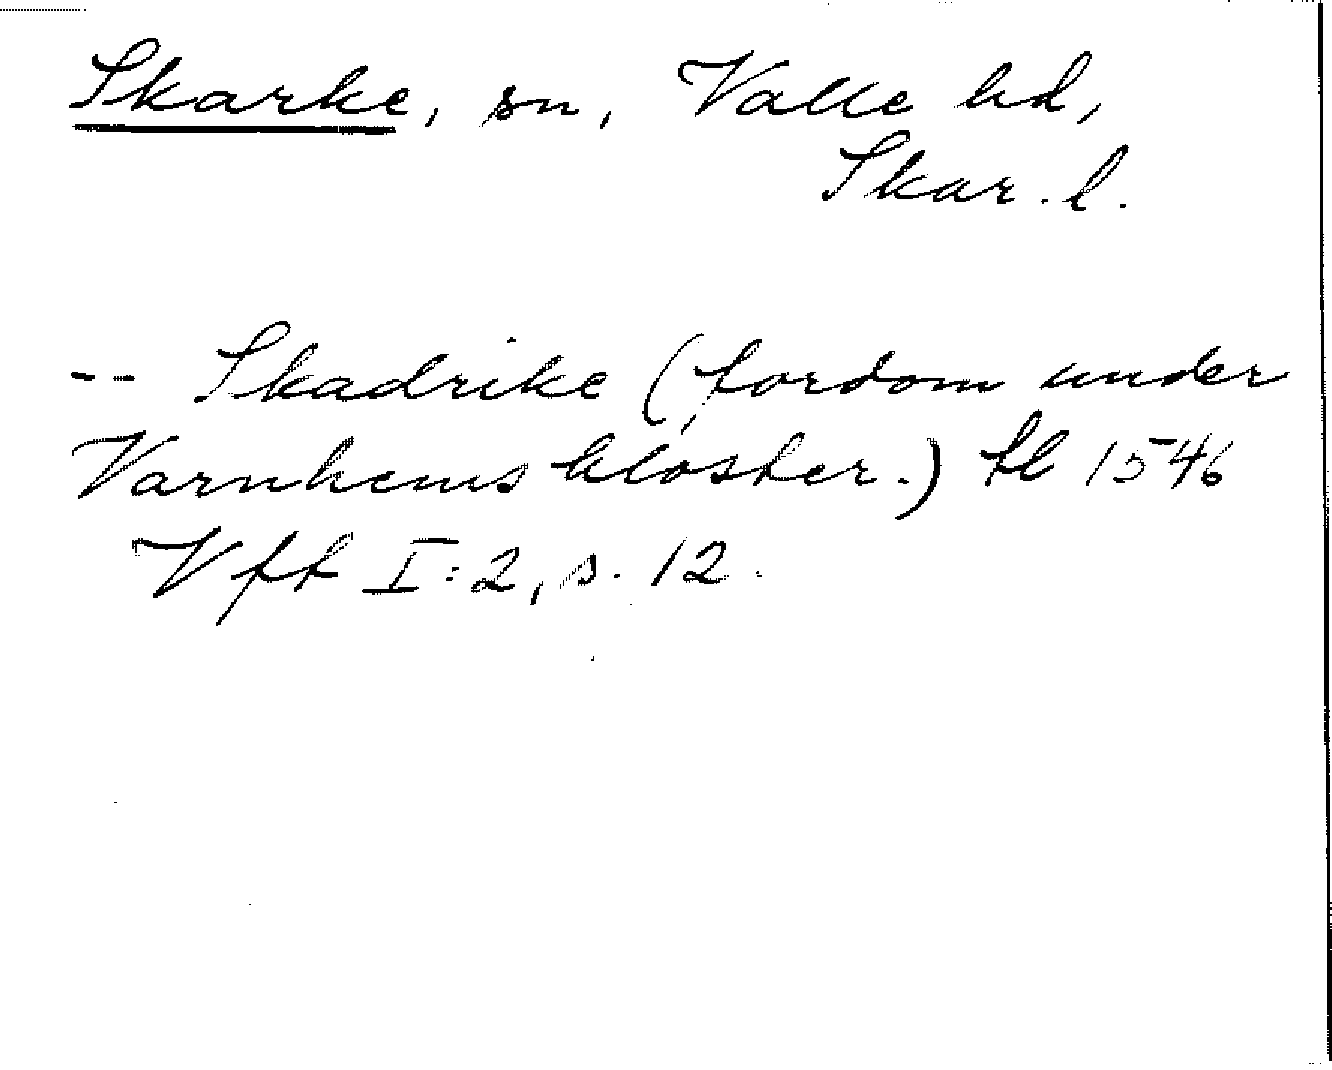 Skarke, sn, Valle hd,
Skar. l.
-- Skadrike (fordom under
Varnhems kloster.) tl 1546
Vft I:2, s. 12.